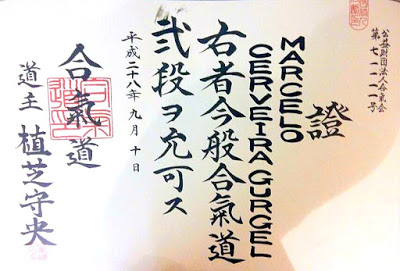 公益財団法人合気会
第七一一一一号
證
MARCELO
CERVEIRA GURGEL
右者今般合氣道
弐段ヲ允可ス
平成二十八年九月十日
合氣道
道主 植芝守央